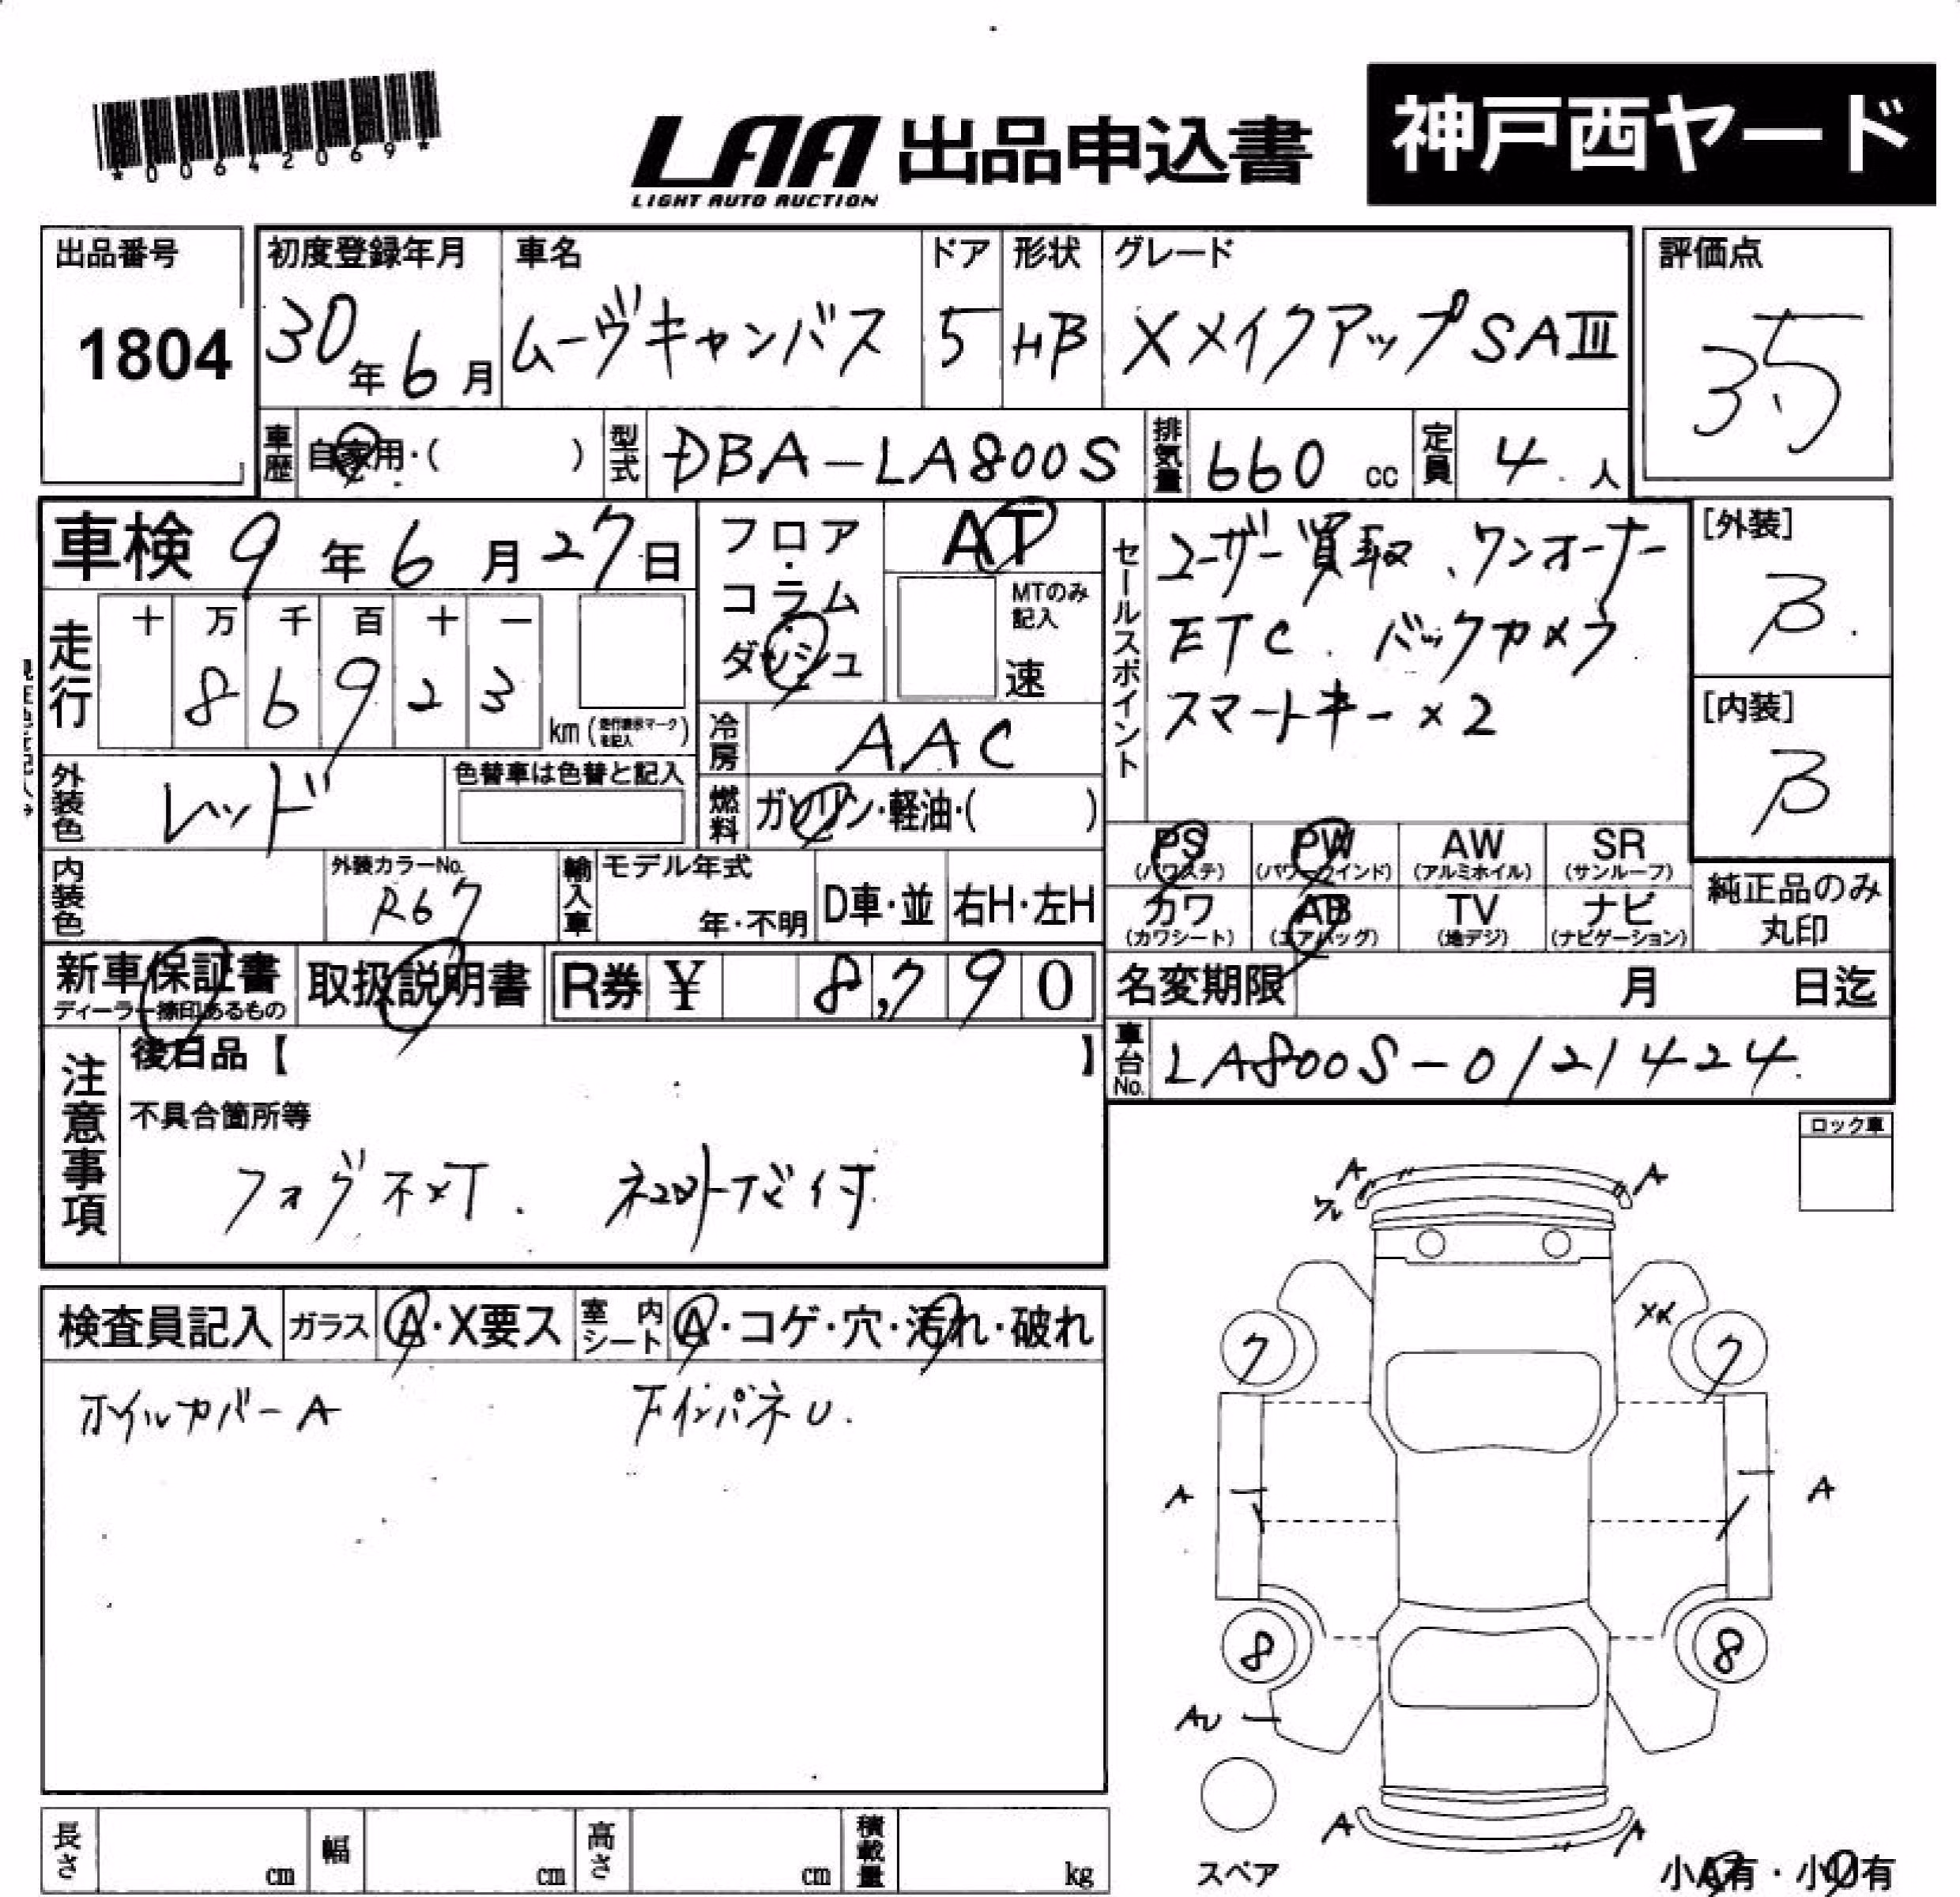 *00642069*
LAA 出品申込書
LIGHT AUTO AUCTION
神戸西ヤード
出品番号
1804
初度登録年月
30年6月
車名
ムーヴキャンバス
ドア
5
形状
HB
グレード
XメイクアップSAⅢ
評価点
3.5
車歴 自家用・( )
型式 DBA-LA800S
排気量 660 cc
定員 4人
車検 9年6月27日
走行
十 万 千 百 十 一
8 6 9 2 3
km (走行表示マークを記入)
フロア・コラム・ダッシュ
AT
MTのみ記入
速
セールスポイント
ユーザー買取、ワンオーナー
ETC. バックカメラ
スマートキー×2
[外装]
B
[内装]
B
冷房 AAC
外装色 レッド
色替車は色替と記入
燃料 ガソリン・軽油・( )
内装色
外装カラーNo.
R67
輸入車
モデル年式
年・不明
D車・並
右H・左H
PS (パワステ)
PW (パワーウインド)
AW (アルミホイル)
SR (サンルーフ)
カワ (カワシート)
AB (エアバッグ)
TV (地デジ)
ナビ (ナビゲーション)
純正品のみ
丸印
新車保証書
ディーラー捺印あるもの
取扱説明書
R券 ¥ 8,790
名変期限 月 日迄
車台No. LA800S-0121424
注意事項
後日品【 】
不具合箇所等
検査員記入
ガラス A・X要ス
室内シート A・コゲ・穴・汚れ・破れ
ホイルカバーA
下インパネU.
ロック車
A A
A A
7 7
8 8
AU
A A
スペア
小A有・小U有
長さ cm
幅 cm
高さ cm
積載量 kg